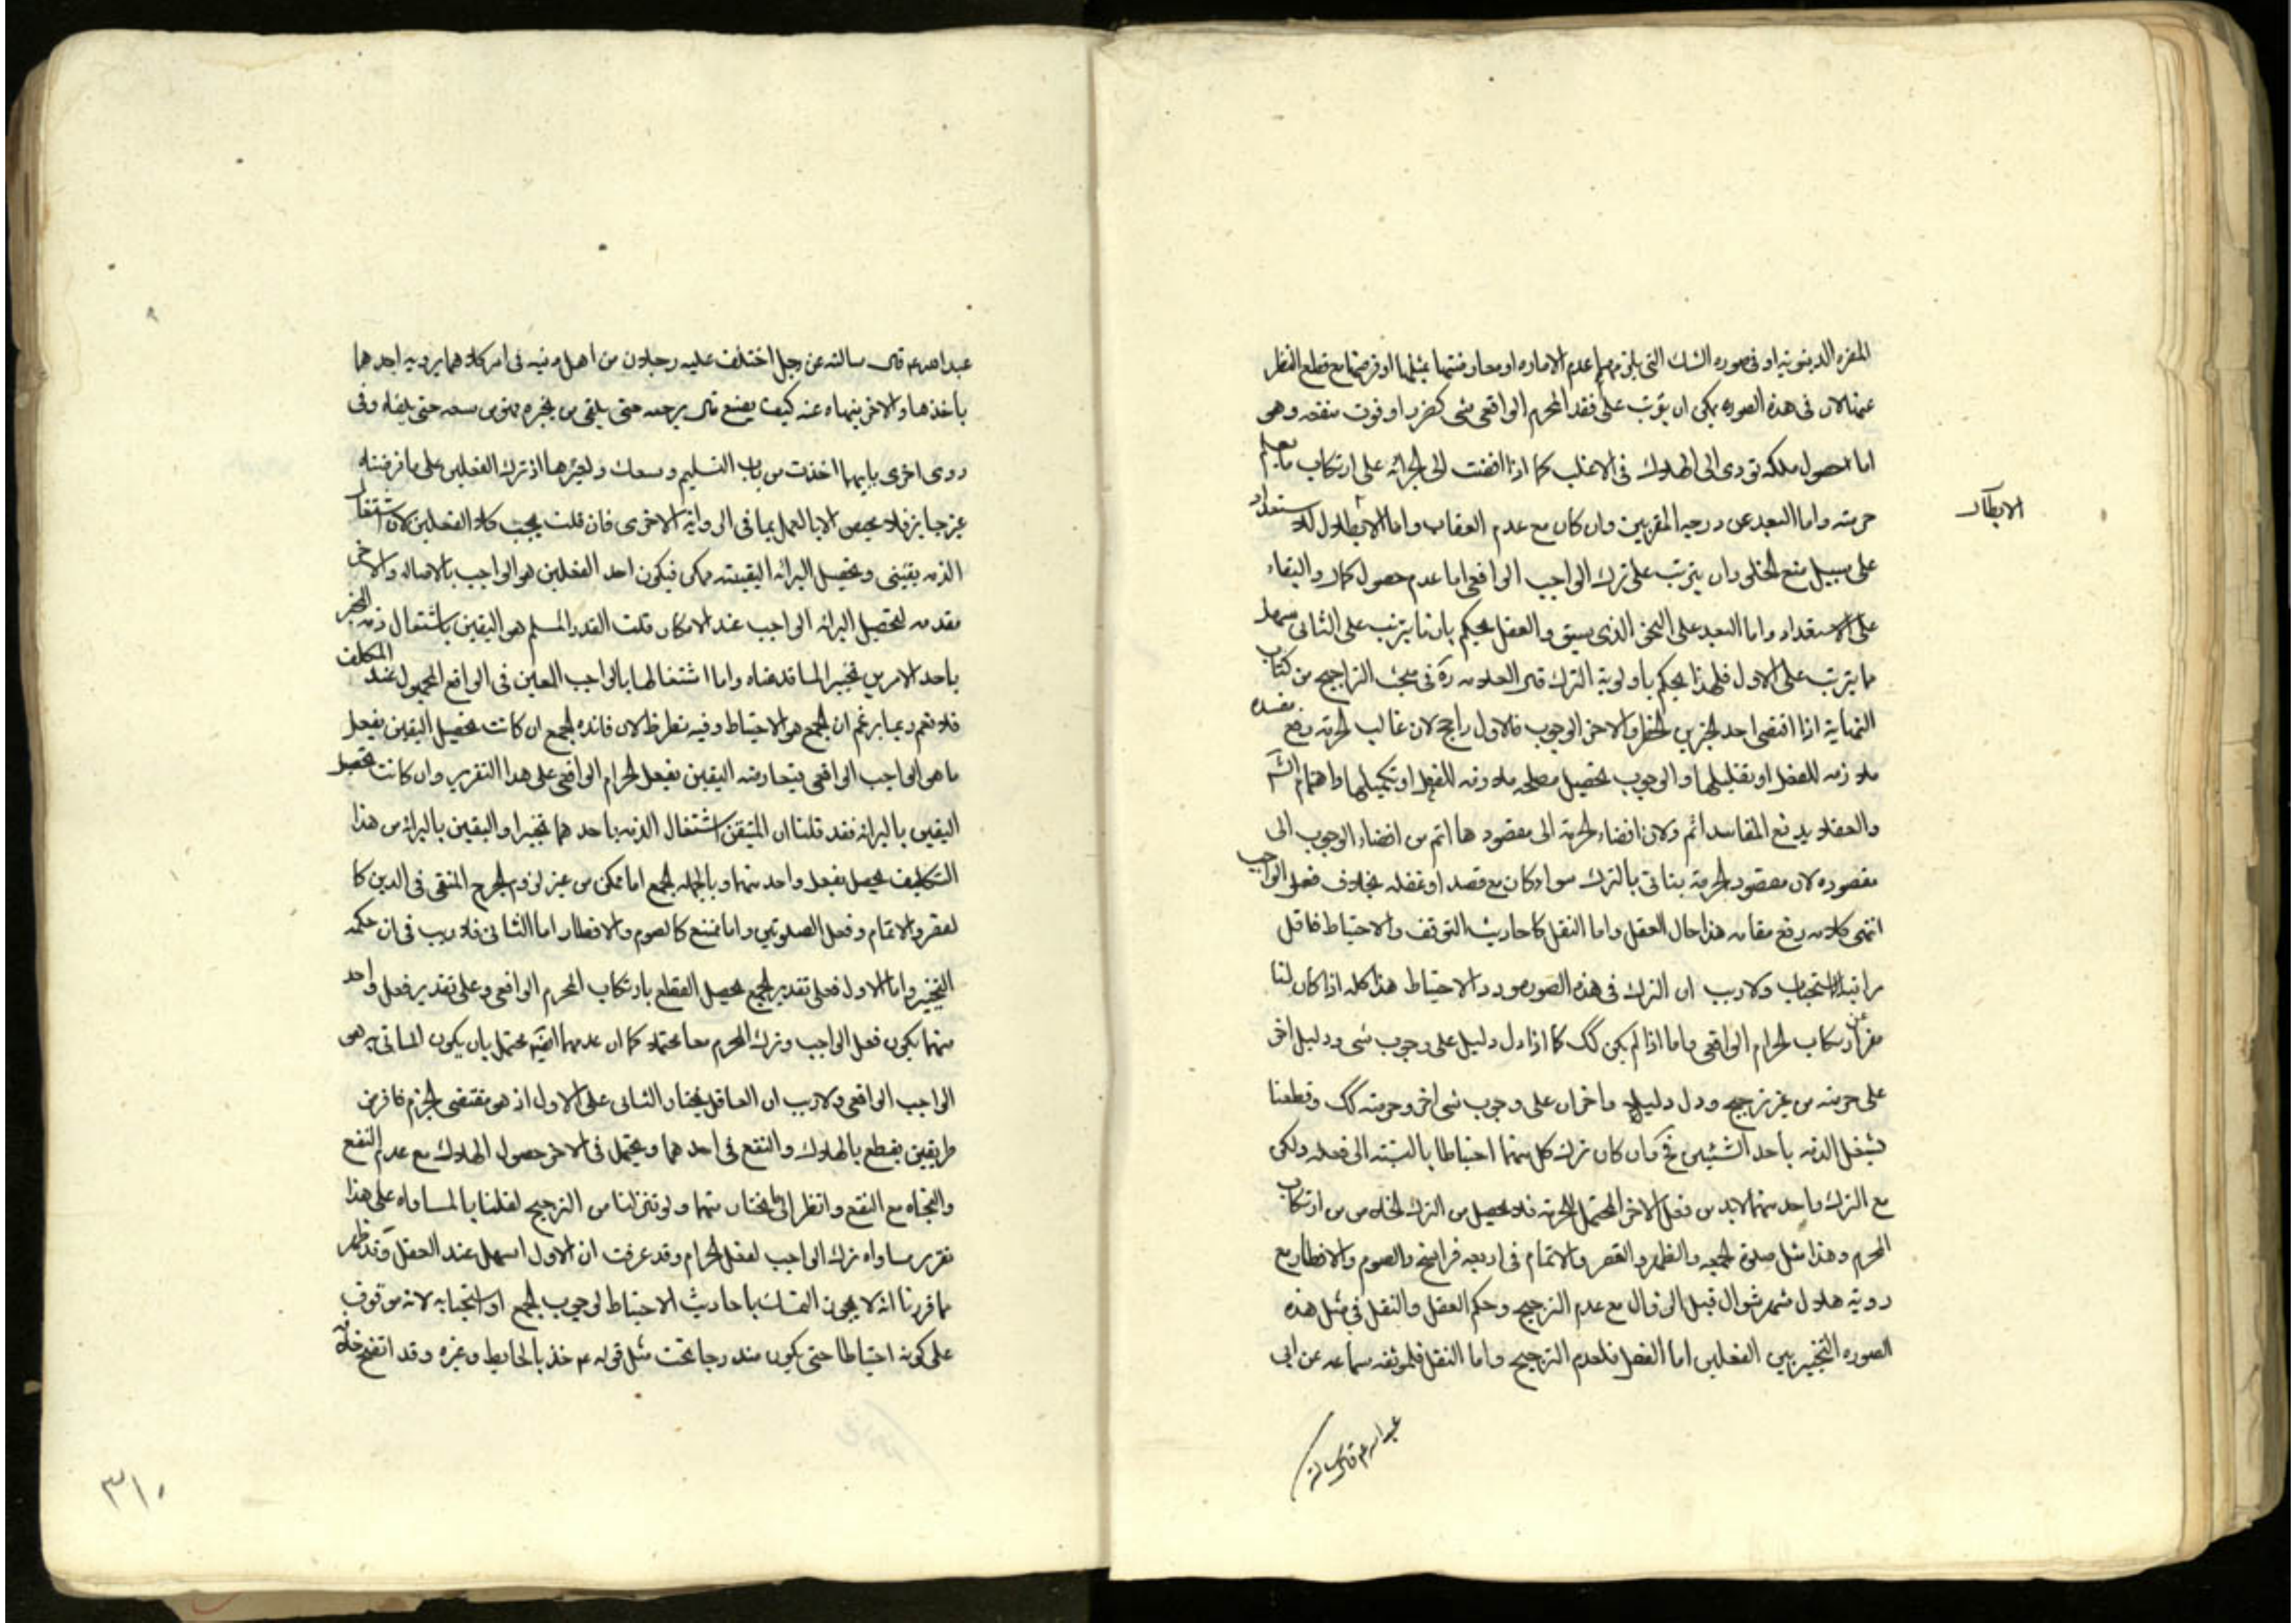 المضره الدينويه او في صوره الشك التي يلزمها عدم الاماره او معارضتها بمثلها او فرضها مع قطع النظر
عنها لان في هذه الصوره يمكن ان يترتب على فقد المحرم الواقعي شي كضرر او فوت منفعه وهي
اما حصول ملكه تودي الى الهلاك في الاغلب كما اذا افضت الى الجراه على ارتكاب ما يعلم
حرمته واما البعد عن درجه المقربين وان كان مع عدم العقاب واما الابطال لاستعداد
على سبيل منع الخلو وان يترتب على ترك الواجب الواقعي اما عدم حصول كمال والبقاء
على الاستعداد واما البعد على النحو الذي سبق والعقل يحكم بان ما يترتب على الثاني سهل
ما يترتب على الاول فلهذا يحكم باولوية الترك قال العلامه ره في مبحث التراجيح من كتاب
النهاية اذا اقتضى احد الخبرين الحظر والاخر الوجوب فالاول راجح لان غالب الحرمه دفع مفسده
ملازمه للفعل او تقليلها والوجوب تحصيل مصلحه ملازمه للفعل او تكميلها واهتمام الشرع
والعقلاء بدفع المفاسد اتم ولان افضاء الحرمه الى مقصودها اتم من افضاء الوجوب الى
مقصوده لان مقصود الحرمه يتاتى بالترك سواء كان مع قصد او غفله بخلاف فعل الواجب
انتهى كلامه رفع مقامه هذا حال العقل واما النقل كاحاديث التوقف والاحتياط فاقل
مراتبها الاستحباب ولا ريب ان الترك في هذه الصوره مورد الاحتياط هذا كله اذا كان لنا
مفر عن ارتكاب الحرام الواقعي واما اذا لم يكن كك كما اذا دل دليل على وجوب شي ودليل اخر
على حرمته من غير ترجيح ودل دليلان اخران على وجوب شي اخر وحرمته كك وقطعنا
بشغل الذمه باحد الشيئين فح وان كان ترك كل منهما احتياطا بالنسبه الى فعله ولكن
مع الترك واحد منهما لابد من فعل الاخر المحتمل للحرمه فلا يحصل من الترك الخلاص من ارتكاب
المحرم وهذا مثل صلوة الجمعه والظهر والقصر والاتمام في اربعه فراسخ والصوم والافطار مع
رويه هلال شهر شوال قبل الزوال مع عدم الترجيح وحكم العقل والنقل في مثل هذه
الصوره التخيير بين الفعلين اما العقل فلعدم الترجيح واما النقل فلموثقه سماعه عن ابي
عبد الله عم قال سالته
عبد الله عم قال سالته عن رجل اختلف عليه رجلان من اهل دينه في امر كلاهما يرويه احدهما
يامر باخذها والاخر ينهاه عنه كيف يصنع قال يرجئه حتى يلقى من يخبره فهو في سعه حتى يلقاه وفي
روى اخرى بايهما اخذت من باب التسليم وسعك ولغيرها اذ ترك الفعلين على ما فرضناه
غير جايز فلا محيص الا بالعمل بما في الروايه الاخرى فان قلت يجب كلا الفعلين لان اشتغال
الذمه يقيني وتحصيل البرائه اليقينيه ممكن فيكون احد الفعلين هو الواجب بالاصاله والاخر
مقدمه لتحصيل البرائه الواجب عند الامكان قلت القدر المسلم هو اليقين باشتغال ذمه
باحد الامرين تخييرا لما قدمناه واما اشتغالها بالواجب المعين في الواقع المجهول عند المكلف
فلا نعم ربما يزعم ان الجمع هو الاحتياط وفيه نظر ظ لان فائده الجمع ان كانت تحصيل اليقين بفعل
ما هو الواجب الواقعي يتعارضه اليقين بفعل الحرام الواقعي على هذا التقرير وان كانت تحصيل
اليقين بالبرائه فقد قلنا ان المتيقن اشتغال الذمه باحدهما تخييرا واليقين بالبرائه من هذا
التكليف يحصل بفعل واحد منهما وبالجمله الجمع اما ممكن من غير لزوم الحرج المنفي في الدين كا
لقصر والاتمام وفعل الصلوتين واما ممتنع كالصوم والافطار اما الثاني فلا ريب في ان حكمه
التخيير واما الاول فعلى تقدير الجمع يحصل القطع بارتكاب المحرم الواقعي وعلى تقدير فعل واحد
منهما يكون فعل الواجب وترك المحرم معا محتملا كما ان عدمهما ايضا محتمل بان يكون الماتي به هو
الواجب الواقعي ولا ريب ان العاقل يختار الثاني على الاول اذ هو مقتضى الحزم فافرض
طريقين يقطع بالهلاك والنفع في احدهما ويحتمل في الاخر حصول الهلاك مع عدم النفع
والنجاه مع النفع وانظر الى ما يختار منهما ولو تنزلنا من الترجيح لقلنا بالمساواه على هذا
تقرير مساواه ترك الواجب لفعل الحرام وقد عرفت ان الاول اسهل عند العقل وقد ظهر
مما قررنا انه لا يجوز التمسك باحاديث الاحتياط لوجوب الجمع او استحبابه لانه موقوف
على كونه احتياطا حتى يكون مندرجا تحت مثل قوله عم خذ بالحايط وغيره وقد اتضح خلافه
٣١٠